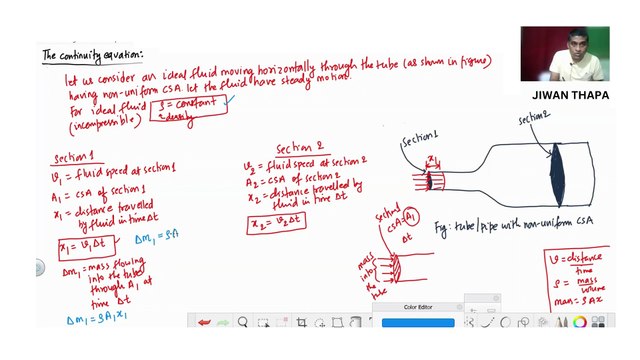 The continuity equation:
let us consider an ideal fluid moving horizontally through the tube (as shown in figure)
having non-uniform CSA. let the fluid have steady motion.
For ideal fluid
(incompressible)
ρ = constant
density
JIWAN THAPA
Section 1
v₁ = fluid speed at section 1
A₁ = CSA of section 1
x₁ = distance travelled
by fluid in time Δt
x₁ = v₁Δt
Δm₁ = ρA
Δm₁ = mass flowing
into the tube
through A₁ at
time Δt
Δm₁ = ρA₁x₁
Section 2
v₂ = fluid speed at section 2
A₂ = CSA of section 2
x₂ = distance travelled by
fluid in time Δt
x₂ = v₂Δt
Section 1
x₁
Section 2
Fig: tube/pipe with non-uniform CSA
Section 1
CSA = A₁
Δt
mass
into
the
tube
v = distance
time
ρ = mass
volume
mass = ρAx
Color Editor